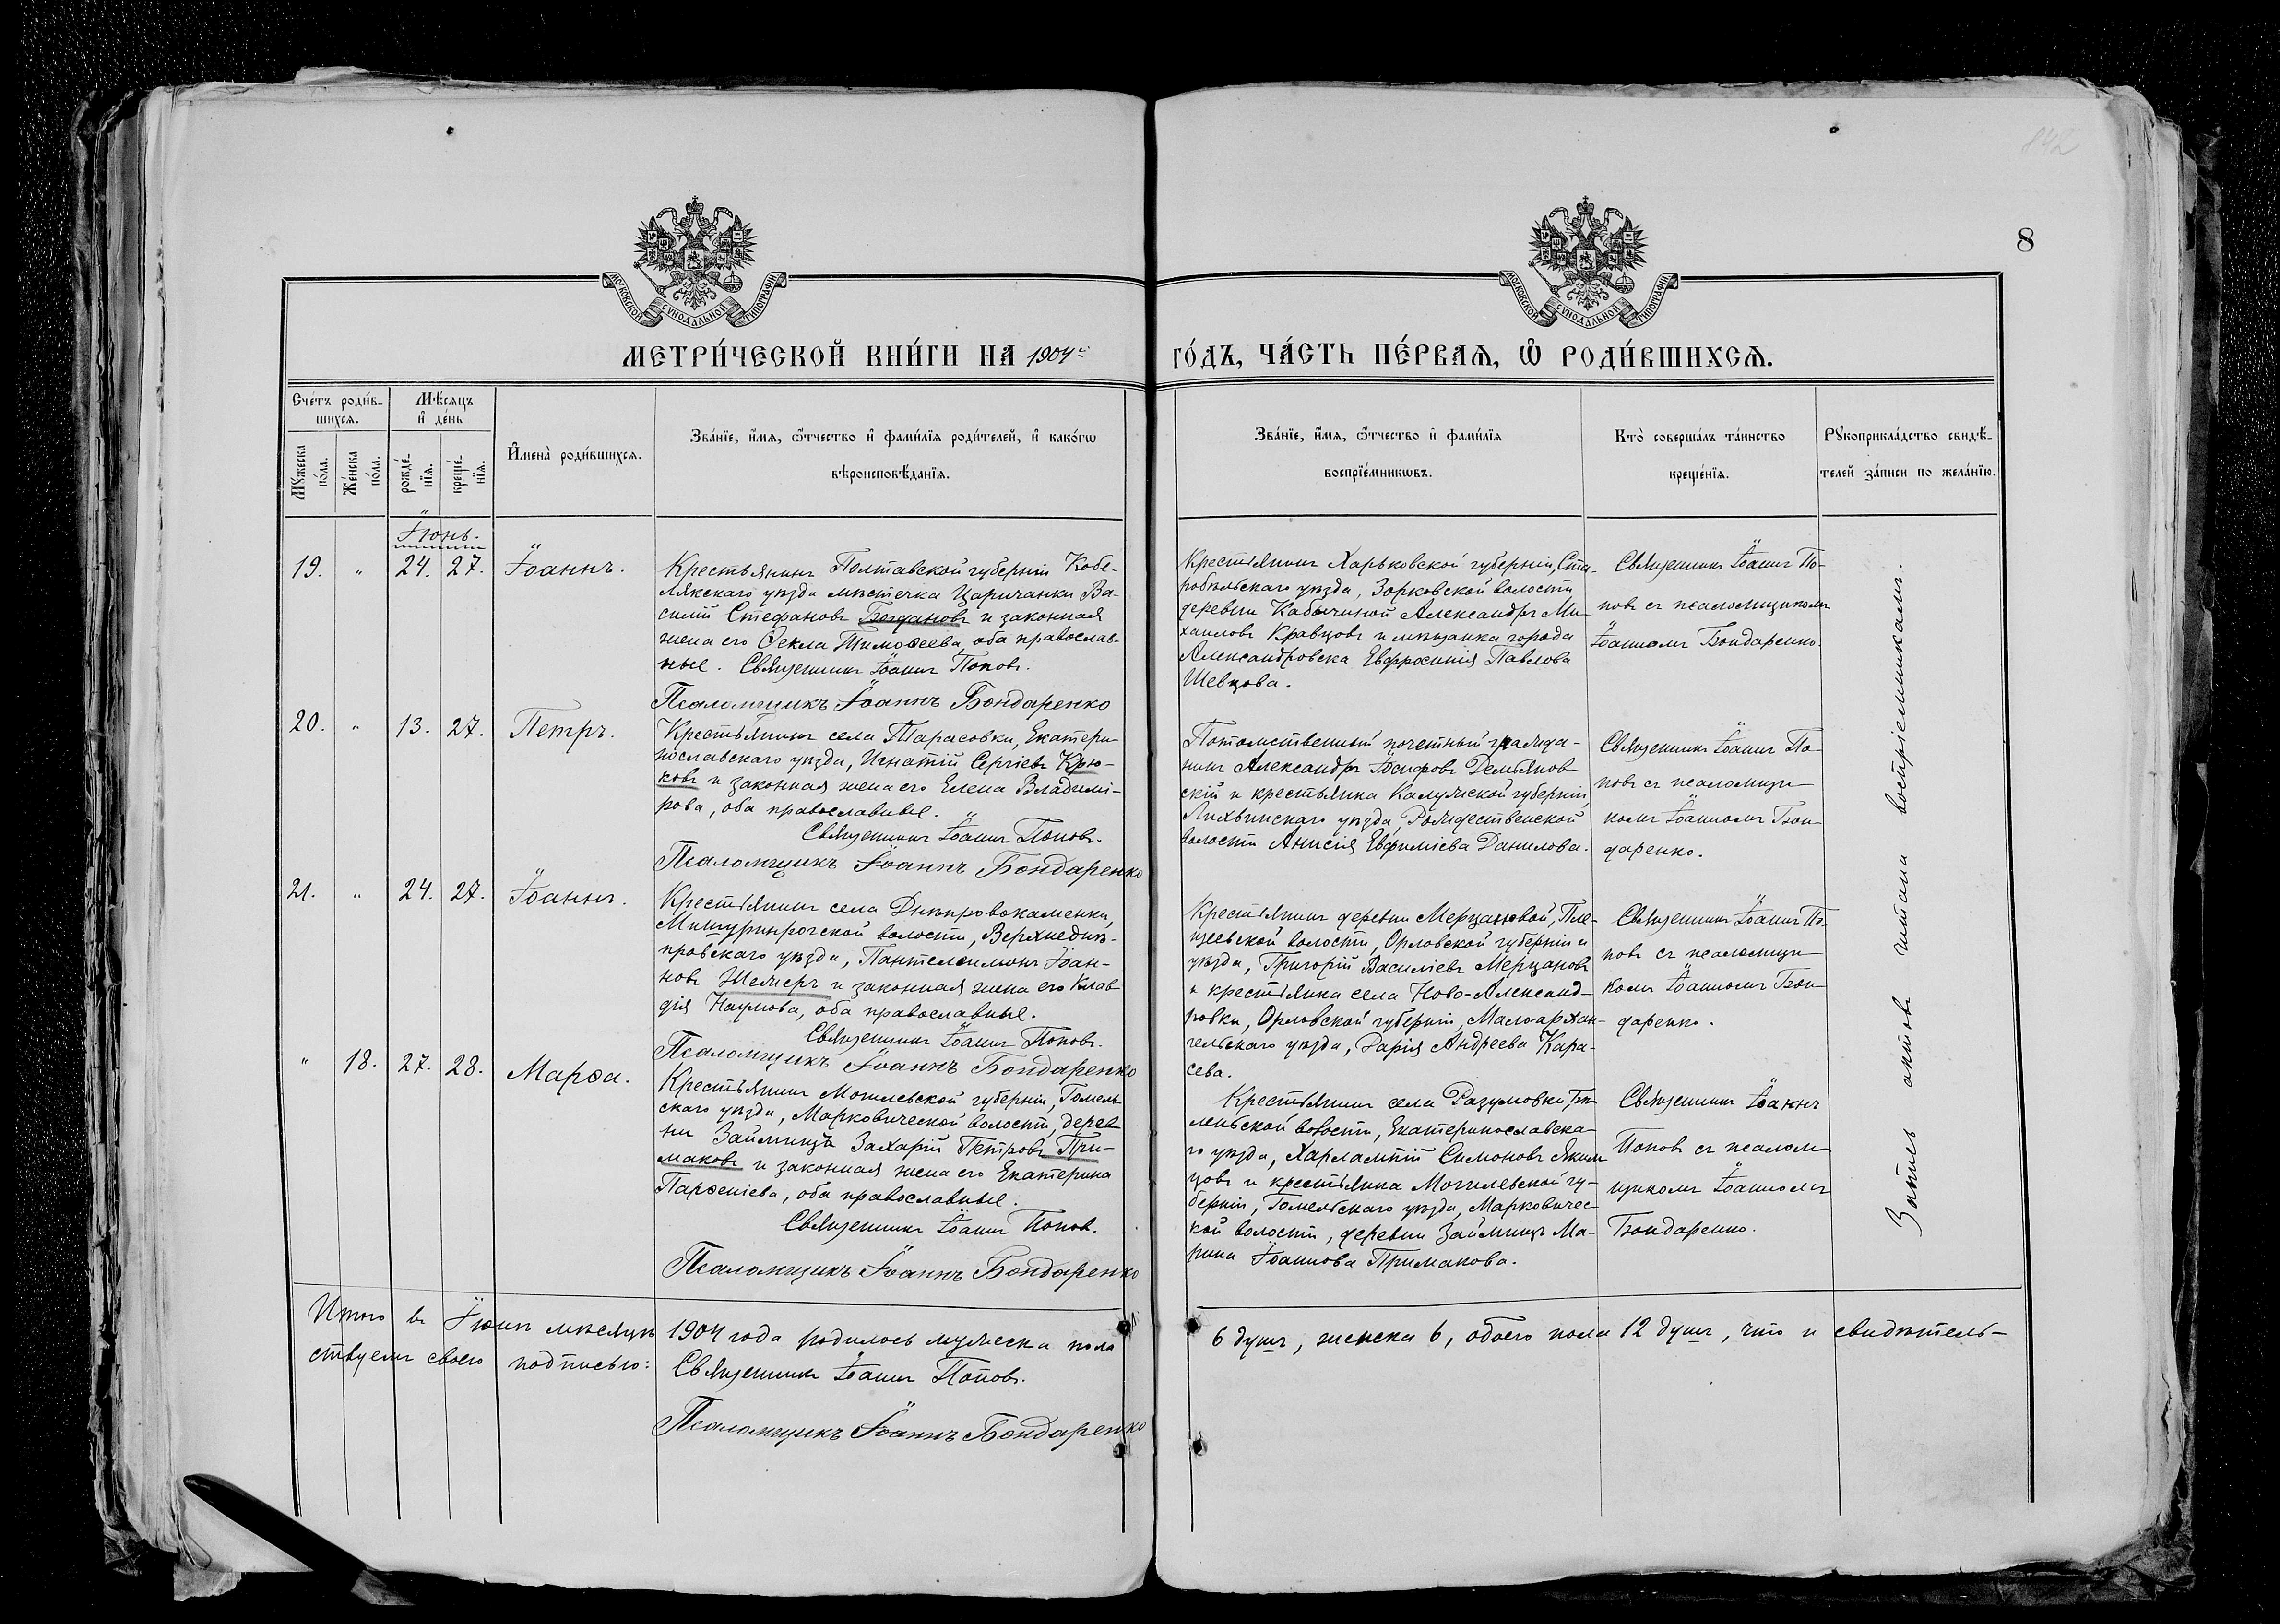 842
8
МОСКОВСКОЙ СУНОДАЛЬНОЙ ТИПОГРАФІИ
МОСКОВСКОЙ СУНОДАЛЬНОЙ ТИПОГРАФІИ
МЕТРИ́ЧЕСКОЙ КНИ́ГИ НА 1904й
ГО́ДЪ, ЧА́СТЬ ПЕ́РВАѦ, Ѡ҆ РОДИ́ВШИХСѦ.
Сче́тъ роди́в-
шихсѧ.
Мꙋ́жеска
по́ла.
Же́нска
по́ла.
Мѣ́сѧцъ
и҆ де́нь
рожде́-
нїѧ.
креще́-
нїѧ.
И҆мена̀ роди́вшихсѧ.
Зва́нїе, и҆́мѧ, ѻ҆́тчество и҆ фами́лїѧ роди́телей, и҆ како́гѡ
вѣроисповѣ́данїѧ.
Зва́нїе, и҆́мѧ, ѻ҆́тчество и҆ фами́лїѧ
воспрїе́мникѡвъ.
Кто̀ соверша́лъ та́инство
креще́нїѧ.
Рꙋкоприкла́дство свидѣ́-
телей за́писи по жела́нїю.
Іюнь.
19. " 24. 27. Іоаннъ.
Крестьянинъ Полтавской губерніи Кобе-
лякскаго уѣзда мѣстечка Царичанки Ва-
силій Стефановъ Богдановъ и законная
жена его Ѳекла Тимоѳеева, оба православ-
ные. Священникъ Іоаннъ Поповъ.
Псаломщикъ Іоаннъ Бондаренко
Крестьянинъ Харьковской губерніи, Ста-
робѣльскаго уѣзда, Зорковской волости
деревни Кабычиной Александръ Ми-
хаиловъ Кравцовъ и мѣщанка города
Александровска Евфросинія Павлова
Шевцова.
Священникъ Іоаннъ По-
повъ съ псаломщикомъ
Іоанномъ Бондаренко.
20. " 13. 27. Петръ.
Крестьянинъ села Тарасовки, Екатери-
нославскаго уѣзда, Игнатій Сергіевъ Крю-
ковъ и законная жена его Елена Владимі-
рова, оба православные.
Священникъ Іоаннъ Поповъ.
Псаломщикъ Іоаннъ Бондаренко
Потомственный почетный гражда-
нинъ Александръ Іосифовъ Дембянов-
скій и крестьянка Калужской губерніи,
Лихвинскаго уѣзда, Рождественской
волости Анисія Евфиміева Данилова.
Священникъ Іоаннъ По-
повъ съ псаломщи-
комъ Іоанномъ Бон-
даренко.
21. " 24. 27. Іоаннъ.
Крестьянинъ села Днѣпровокаменки,
Мишуринрогской волости, Верхнеднѣ-
провскаго уѣзда, Пантелеимонъ Іоан-
новъ Шемеръ и законная жена его Клав-
дія Наумова, оба православные.
Священникъ Іоаннъ Поповъ.
Псаломщикъ Іоаннъ Бондаренко
Крестьянинъ деревни Мерцановой, Пле-
щеевской волости, Орловской губерніи и
уѣзда, Григорій Василіевъ Мерцановъ
и крестьянка села Ново-Александ-
ровки, Орловской губерніи, Малоархан-
гельскаго уѣзда, Дарія Андреева Кара-
сева.
Священникъ Іоаннъ По-
повъ съ псаломщи-
комъ Іоанномъ Бон-
даренко.
" 18. 27. 28. Марѳа.
Крестьянинъ Могилевской губерніи, Гомель-
скаго уѣзда, Марковической волости, дерев-
ни Займищъ Захарій Петровъ При-
маковъ и законная жена его Екатерина
Парѳеніева, оба православные.
Священникъ Іоаннъ Поповъ.
Псаломщикъ Іоаннъ Бондаренко
Крестьянинъ села Разумовки,
волости, Екатеринославска-
го уѣзда, Харлампій Симоновъ Яким-
цовъ и крестьянка Могилевской гу-
берніи, Гомельскаго уѣзда, Марковичес-
кой волости, деревни Займищъ Ма-
рина Іоаннова Примакова.
Священникъ Іоаннъ
Поповъ съ псалом-
щикомъ Іоанномъ
Бондаренко.
Запись актовъ читана воспріемниками.
Итого въ Іюнѣ мѣсяцѣ 1904 года родилось мужеска пола 6 душъ, женска 6, обоего пола 12 душъ, что и свидѣтель-
ствуемъ своею подписью: Священникъ Іоаннъ Поповъ.
Псаломщикъ Іоаннъ Бондаренко